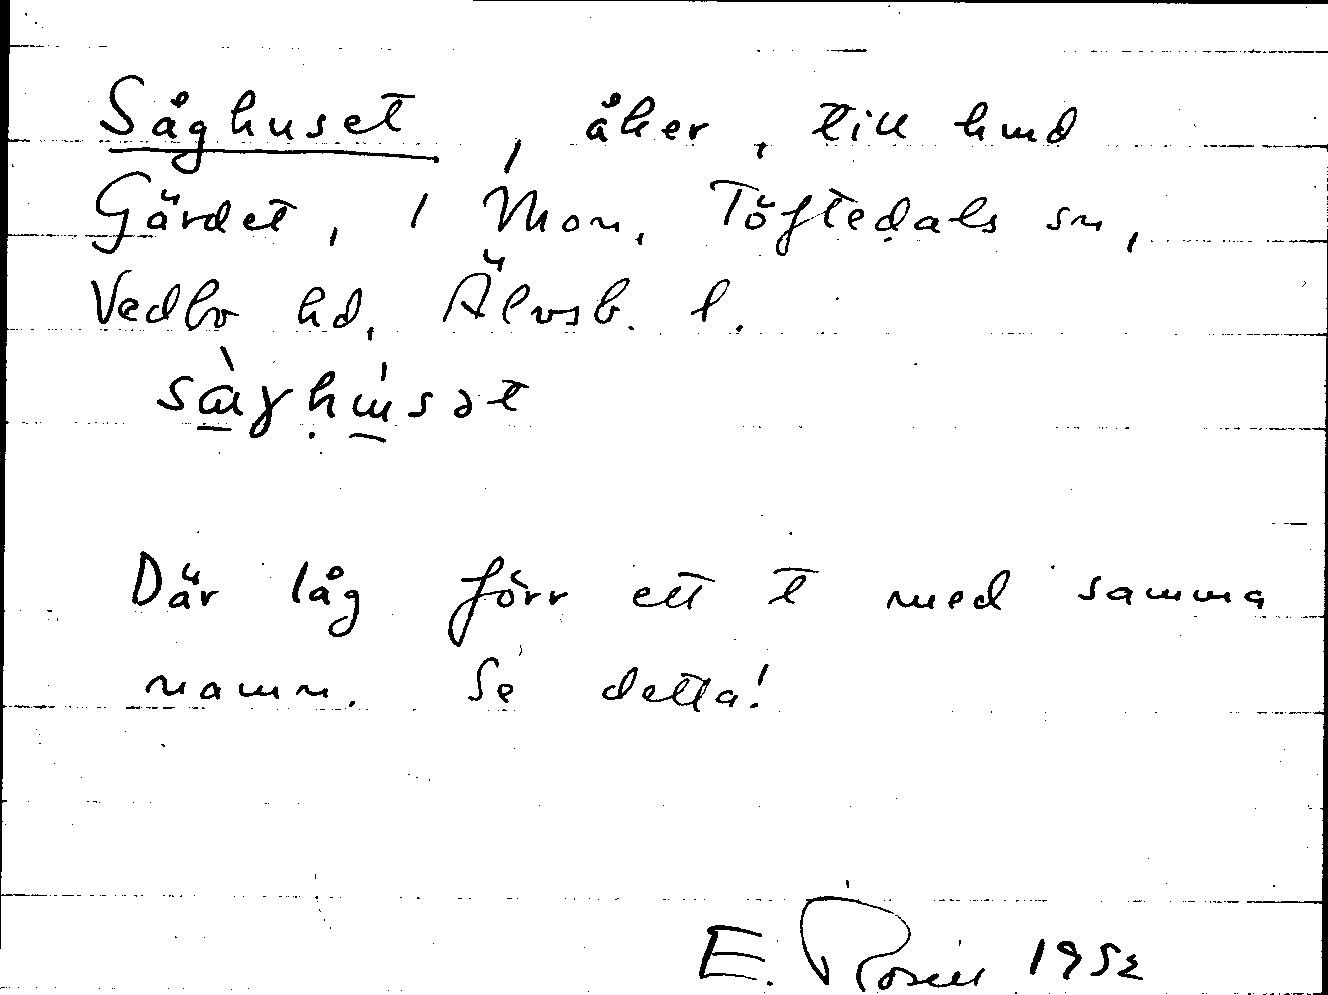 Såghuset, åker, till hmd
Gärdet, 1 Mon, Töftedals sn,
Vedbo hd, Älvsb. l.
Där låg förr ett t med samma
namn. Se detta!
E. Rosell 1952